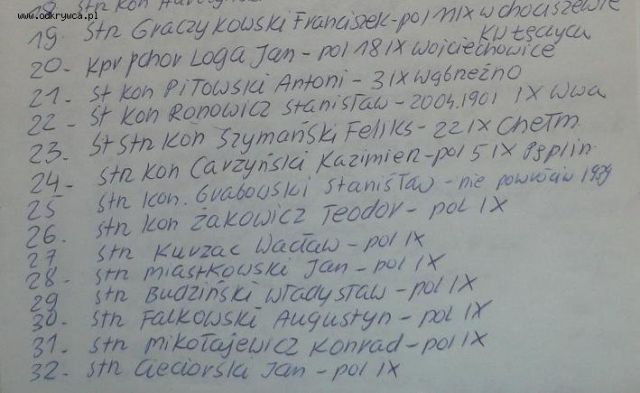 www.odkrywca.pl
18. Str Kon
19. Str Graczykowski Franciszek - pol 11 IX w chociszewie
KW Łęczyca
20 - Kpr pchor Loga Jan - pol 18 IX Wojciechowice
21. St Kon Piłowski Antoni - 3 IX Wąbrzeźno
22 - St Kon Ronowicz Stanisław - 2004.1901 IX Wwa
23. St Str Kon Szymański Feliks - 22 IX Chełm
24 - Str Kon Carzyński Kazimierz - pol 5 IX Pęplin
25 Str Kon. Grabowski Stanisław - nie powrócił 1939
26. Str Kon Żakowicz Teodor - pol IX
27 Str Kurzac Wacław - pol IX
28 - Str Miastkowski Jan - pol IX
29 Str Budziński Władysław - pol IX
30 - Str Falkowski Augustyn - pol IX
31. Str Mikołajewicz Konrad - pol IX
32. Str Cieciorski Jan - pol IX